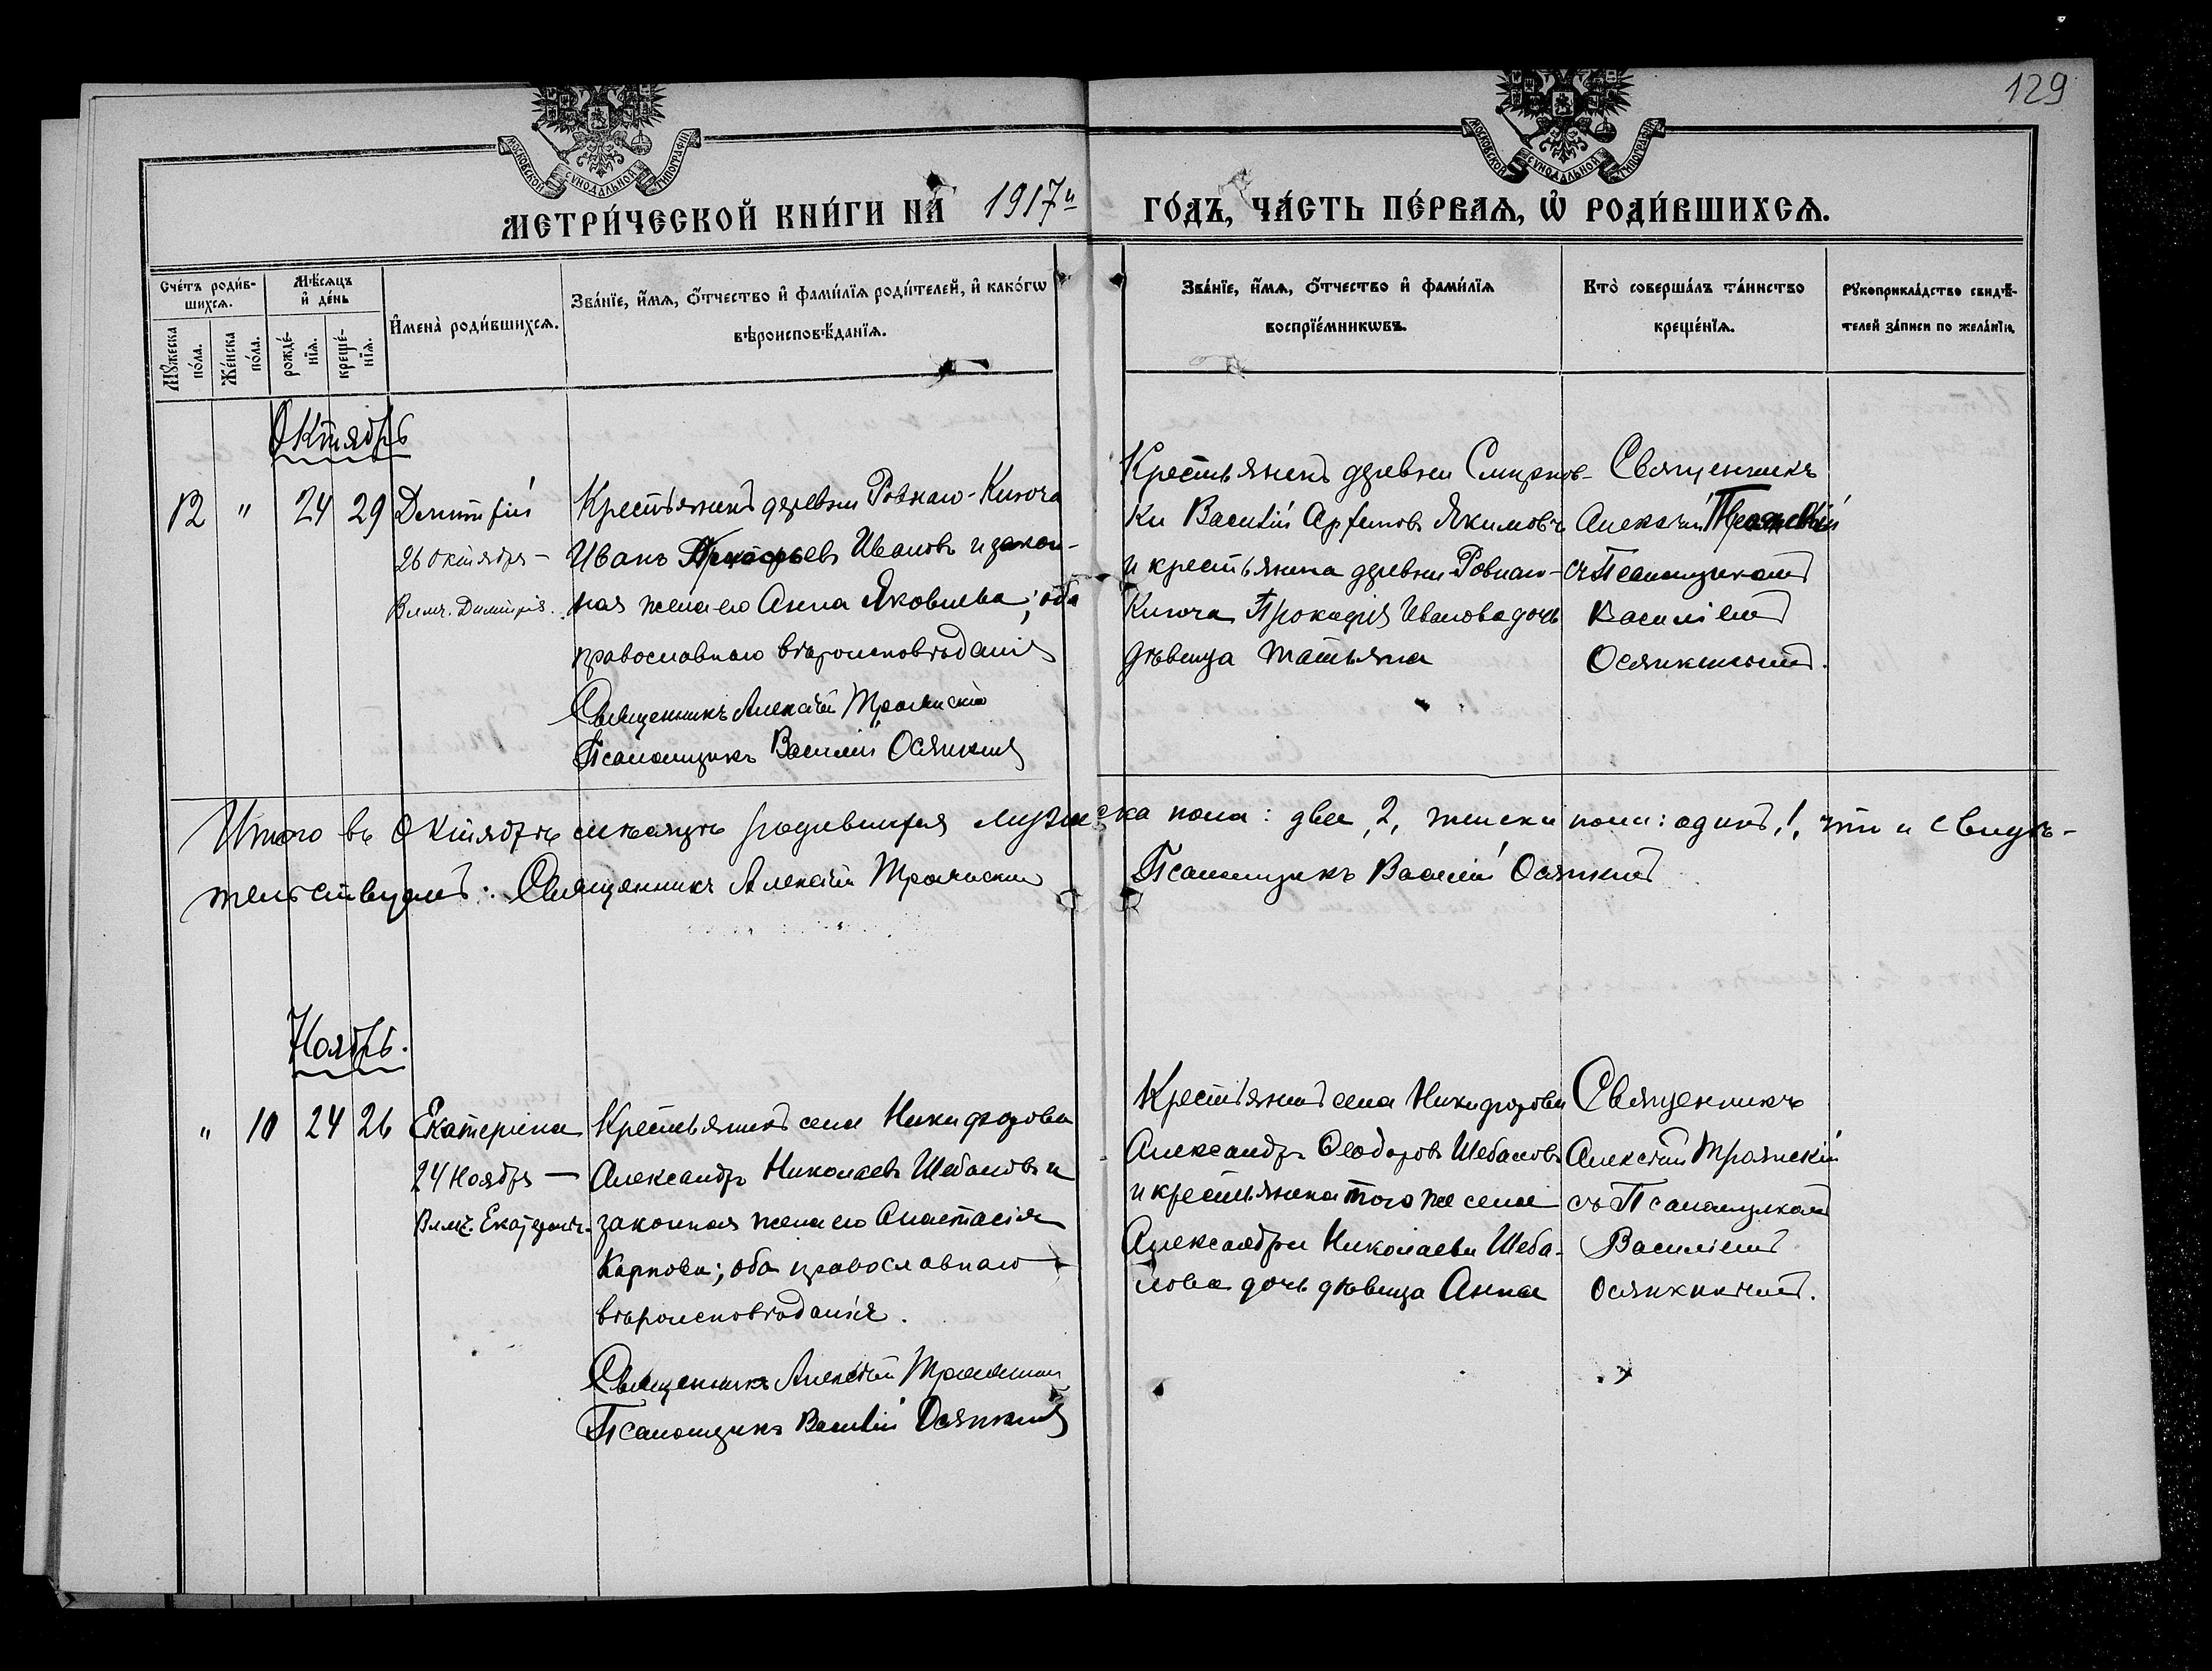 129
МОСКОВСКОЙ СѴНОДАЛЬНОЙ ТИПОГРАФІИ
МОСКОВСКОЙ СѴНОДАЛЬНОЙ ТИПОГРАФІИ
МЕТРИ́ЧЕСКОЙ КНИ́ГИ НА 1917й ГО́ДЪ, ЧА́СТЬ ПЕ́РВАѦ, Ѡ҆ РОДИ́ВШИХСѦ.
Сче́тъ роди́в-
шихсѧ.
Мꙋ́жеска по́ла.
Же́нска по́ла.
Мѣ́сѧцъ и҆ де́нь
рожде́-нїѧ.
креще́-нїѧ.
И҆мена̀ роди́вшихсѧ.
Зва́нїе, и҆́мѧ, ѻ҆́тчество и҆ фами́лїѧ роди́телей, и҆ како́гѡ
вѣроисповѣ́данїѧ.
Зва́нїе, и҆́мѧ, ѻ҆́тчество и҆ фами́лїѧ
воспрїе́мникѡвъ.
Кто̀ соверша́лъ та́инство
креще́нїѧ.
Рꙋкоприкла́дство свидѣ́-
телей за́писи по жела́нїю.
Октябрь
12 " 24 29 Димитрій
26 октября –
Влмч. Димитрія.
Крестьянинъ деревни Ровнаго-Ключа
Иванъ Иванова и закон-
ная жена его Анна Яковлева; оба
православнаго вѣроисповѣданія
Священникъ Алексѣй Троянскій
Псаломщикъ Василій Осянкинъ
Крестьянинъ деревни Смирнов-
ки Василій Артемовъ Якимовъ
и крестьянина деревни Ровнаго-
Ключа Прокофія Иванова дочь
дѣвица Татьяна
Священникъ
Алексѣй Троянскій
съ Псаломщикомъ
Василіемъ
Осянкинымъ.
Итого въ Октябрѣ мѣсяцѣ родившихся мужеска пола: двое, 2, женска пола: одинъ, 1, что и свидѣ-
тельствуемъ: Священникъ Алексѣй Троянскій Псаломщикъ Василій Осянкинъ
Ноябрь.
" 10 24 26 Екатерина
24 Ноября –
Влмч. Екатерины.
Крестьянинъ села Никифорова
Александръ Николаевъ Шебаловъ и
законная жена его Анастасія
Карпова; оба православнаго
вѣроисповѣданія.
Священникъ Алексѣй Троянскій
Псаломщикъ Василій Осянкинъ
Крестьянинъ села Никифорова
Александръ Ѳеодоровъ Шебаловъ
и крестьянина того же села
Александра Николаева Шеба-
лова дочь дѣвица Анна
Священникъ
Алексѣй Троянскій
съ Псаломщикомъ
Василіемъ
Осянкинымъ.